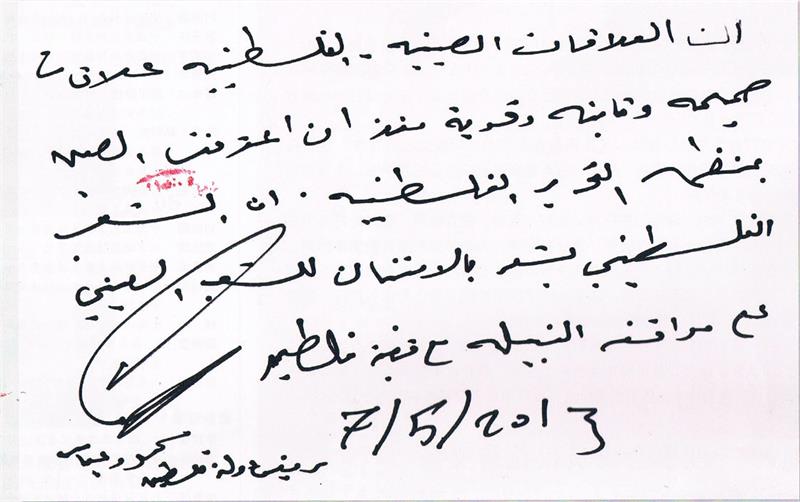 ان العلاقات الصينيه - الفلسطينيه علاقات
حميمه وثابته وقوية منذ ان اعترفت الصين
بمنظمه التحرير الفلسطينيه . ان الشعب
الفلسطيني يشعر بالامتنان للشعب الصيني
على مواقفه النبيله مع قضية فلسطين
7/5/2013
محمود عباس
رئيس دولة فلسطين